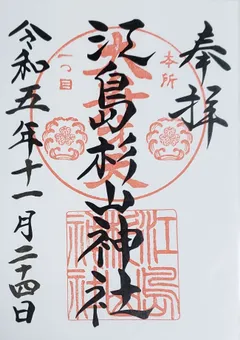 奉拝
本所
一つ目
江島杉山神社
江島杉山神社
令和五年十一月二十四日